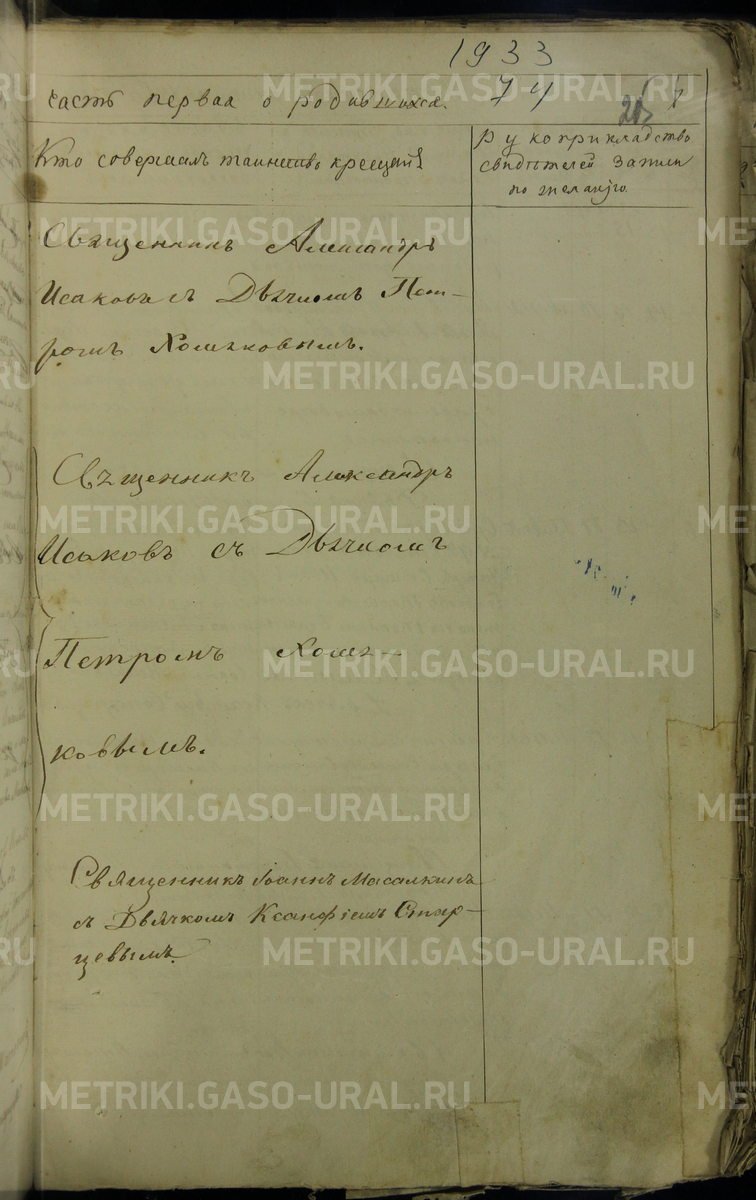 1933
часть первая о родившихся. 74
Кто совершалъ таинство крещенія
рукоприкладство
свидѣтелей записи
по желанію.
Священникъ Александръ
Исаковъ съ Дьячкомъ Пет-
ромъ Хомяковымъ.
Священникъ Александръ
Исаковъ съ Дьячкомъ
Петромъ Хомя-
ковымъ.
Священникъ Іоаннъ Масалкинъ
съ Дьячкомъ Ксанфіемъ Стар-
цевымъ.
METRIKI.GASO-URAL.RU